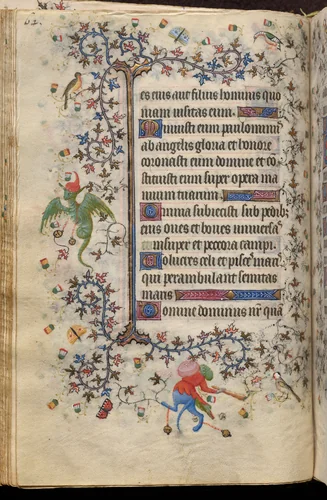 es eius aut filius hominis quo
niam visitas eum.
Minuisti eum paulominus
ab angelis gloria et honore
coronasti eum domine et co
stituisti eum super opera ma
nuum tuarum.
Omnia subiecisti sub pedib
eius oues et boues uniuersas
insuper et pecora campi.
Uolucres celi et pisces mari
qui perambulant semitas
maris
Domine dominus nr qua